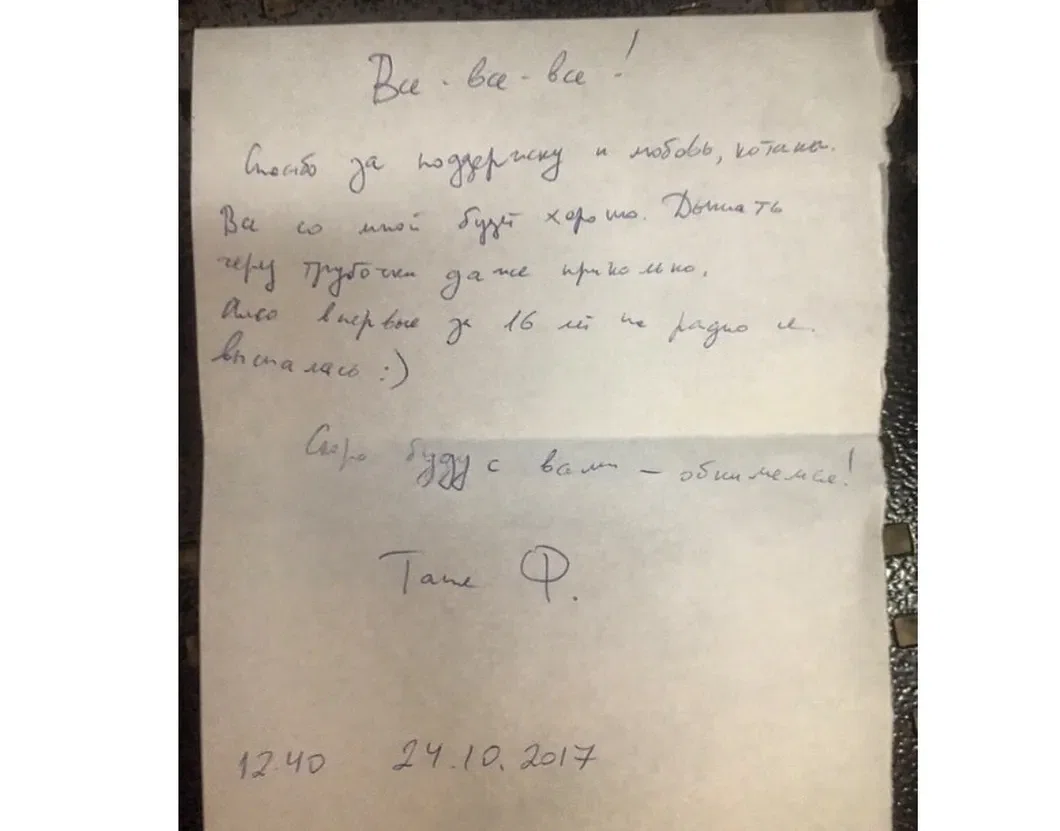 Все-все-все!
Спасибо за поддержку и любовь, котаны.
Все со мной будет хорошо. Дышать
через трубочки даже прикольно.
Алсо впервые за 16 лет на радио я
выспалась :)
Скоро буду с вами – обнимемся!
Таня Ф.
12.40 24.10.2017